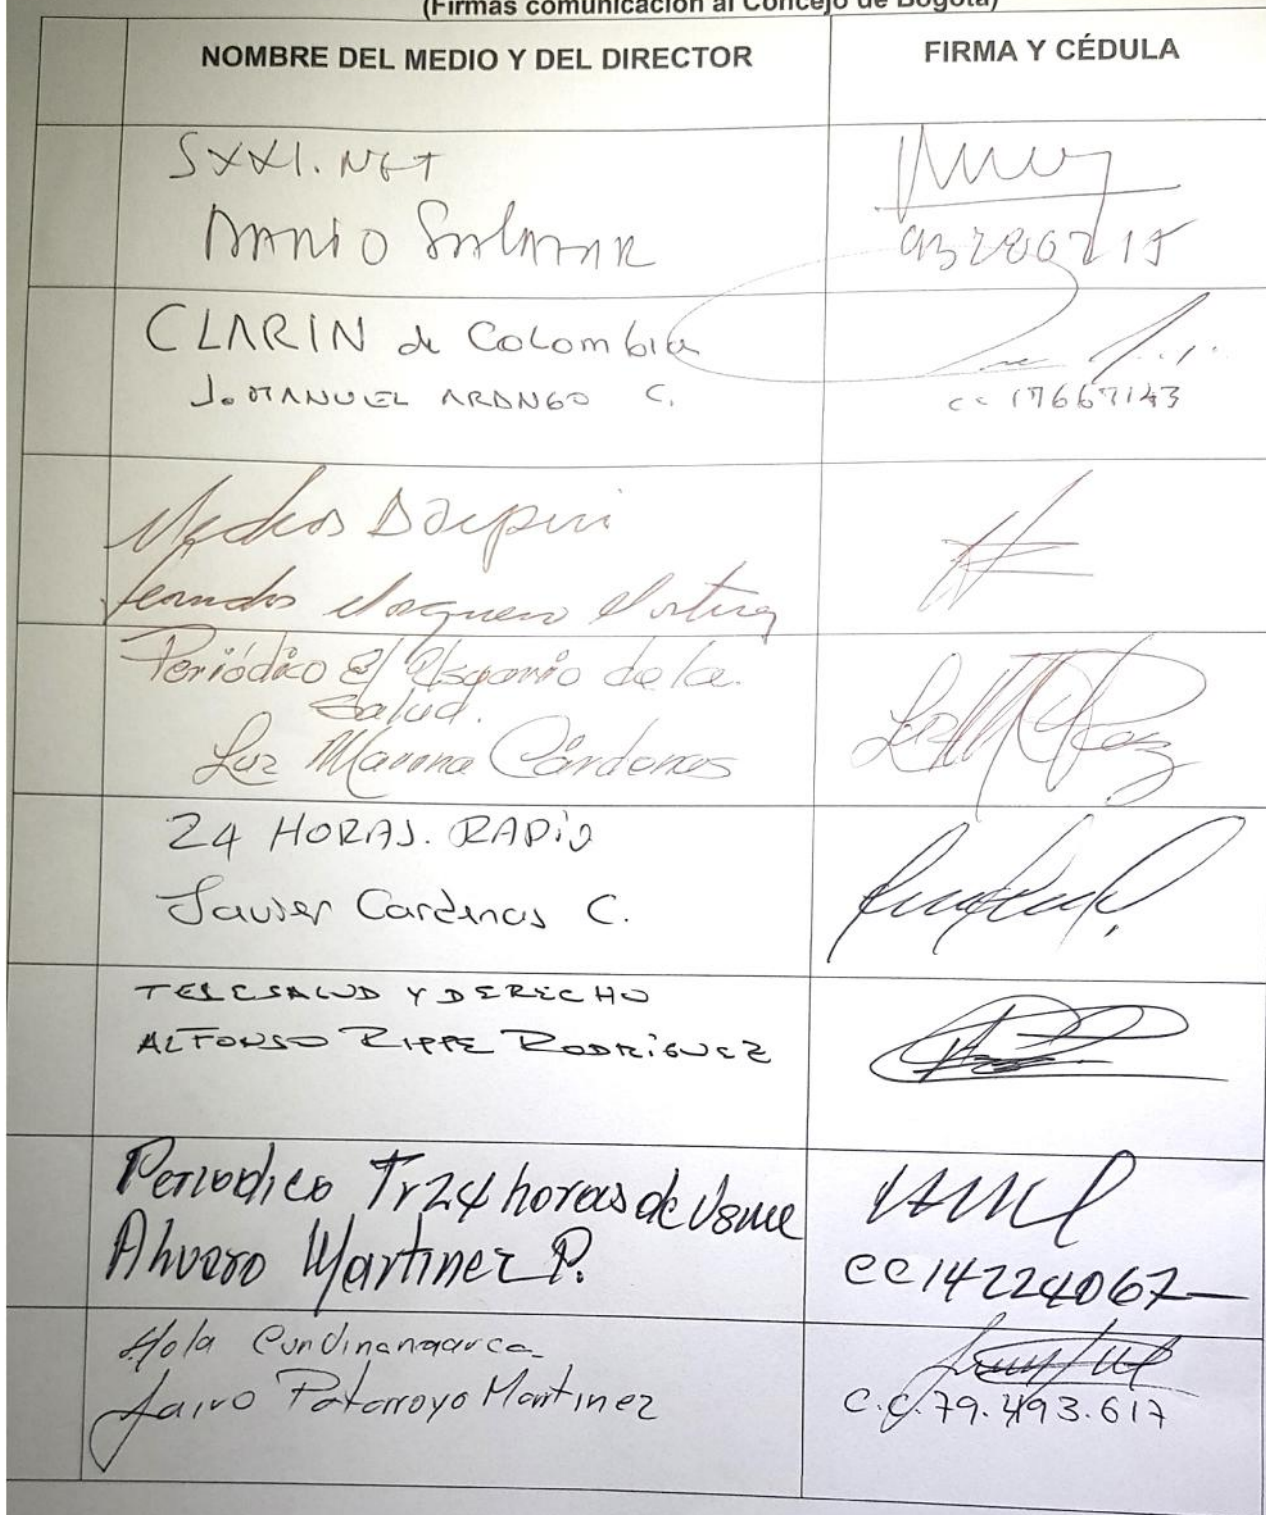 (Firmas comunicación al Concejo de Bogotá)
NOMBRE DEL MEDIO Y DEL DIRECTOR
FIRMA Y CÉDULA
SXXI.NET
DARIO SALAZAR
CLARIN de Colombia
J. MANUEL ARANGO C.
cc 17667143
Medios
Periódico El de la
Salud.
Luz Marina Cárdenas
24 HORAS. RADIO
Javier Cardenas C.
TELESALUD Y DERECHO
ALFONSO RIPPE RODRIGUEZ
Periodico Tr24 horas de Usme
Alvaro Martinez P.
CC 14224067
Hola Cundinamarca
Jairo Patarroyo Martinez
C.C. 79.493.617